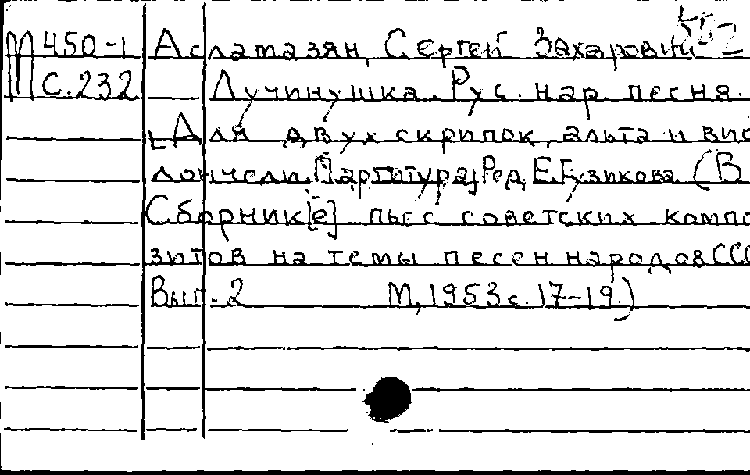 М 450-1 Асламазян, Сергей Захарович
с.232 Лучинушка. Рус. нар песня.
[Для двух скрипок, альта и вио
лончели. Партитура] Ред. Е. Гузикова. (В
Сборник[е] пьес советских компо
зитов на темы песен народов ССС
Вып. 2 М, 1953 с. 17-19.)